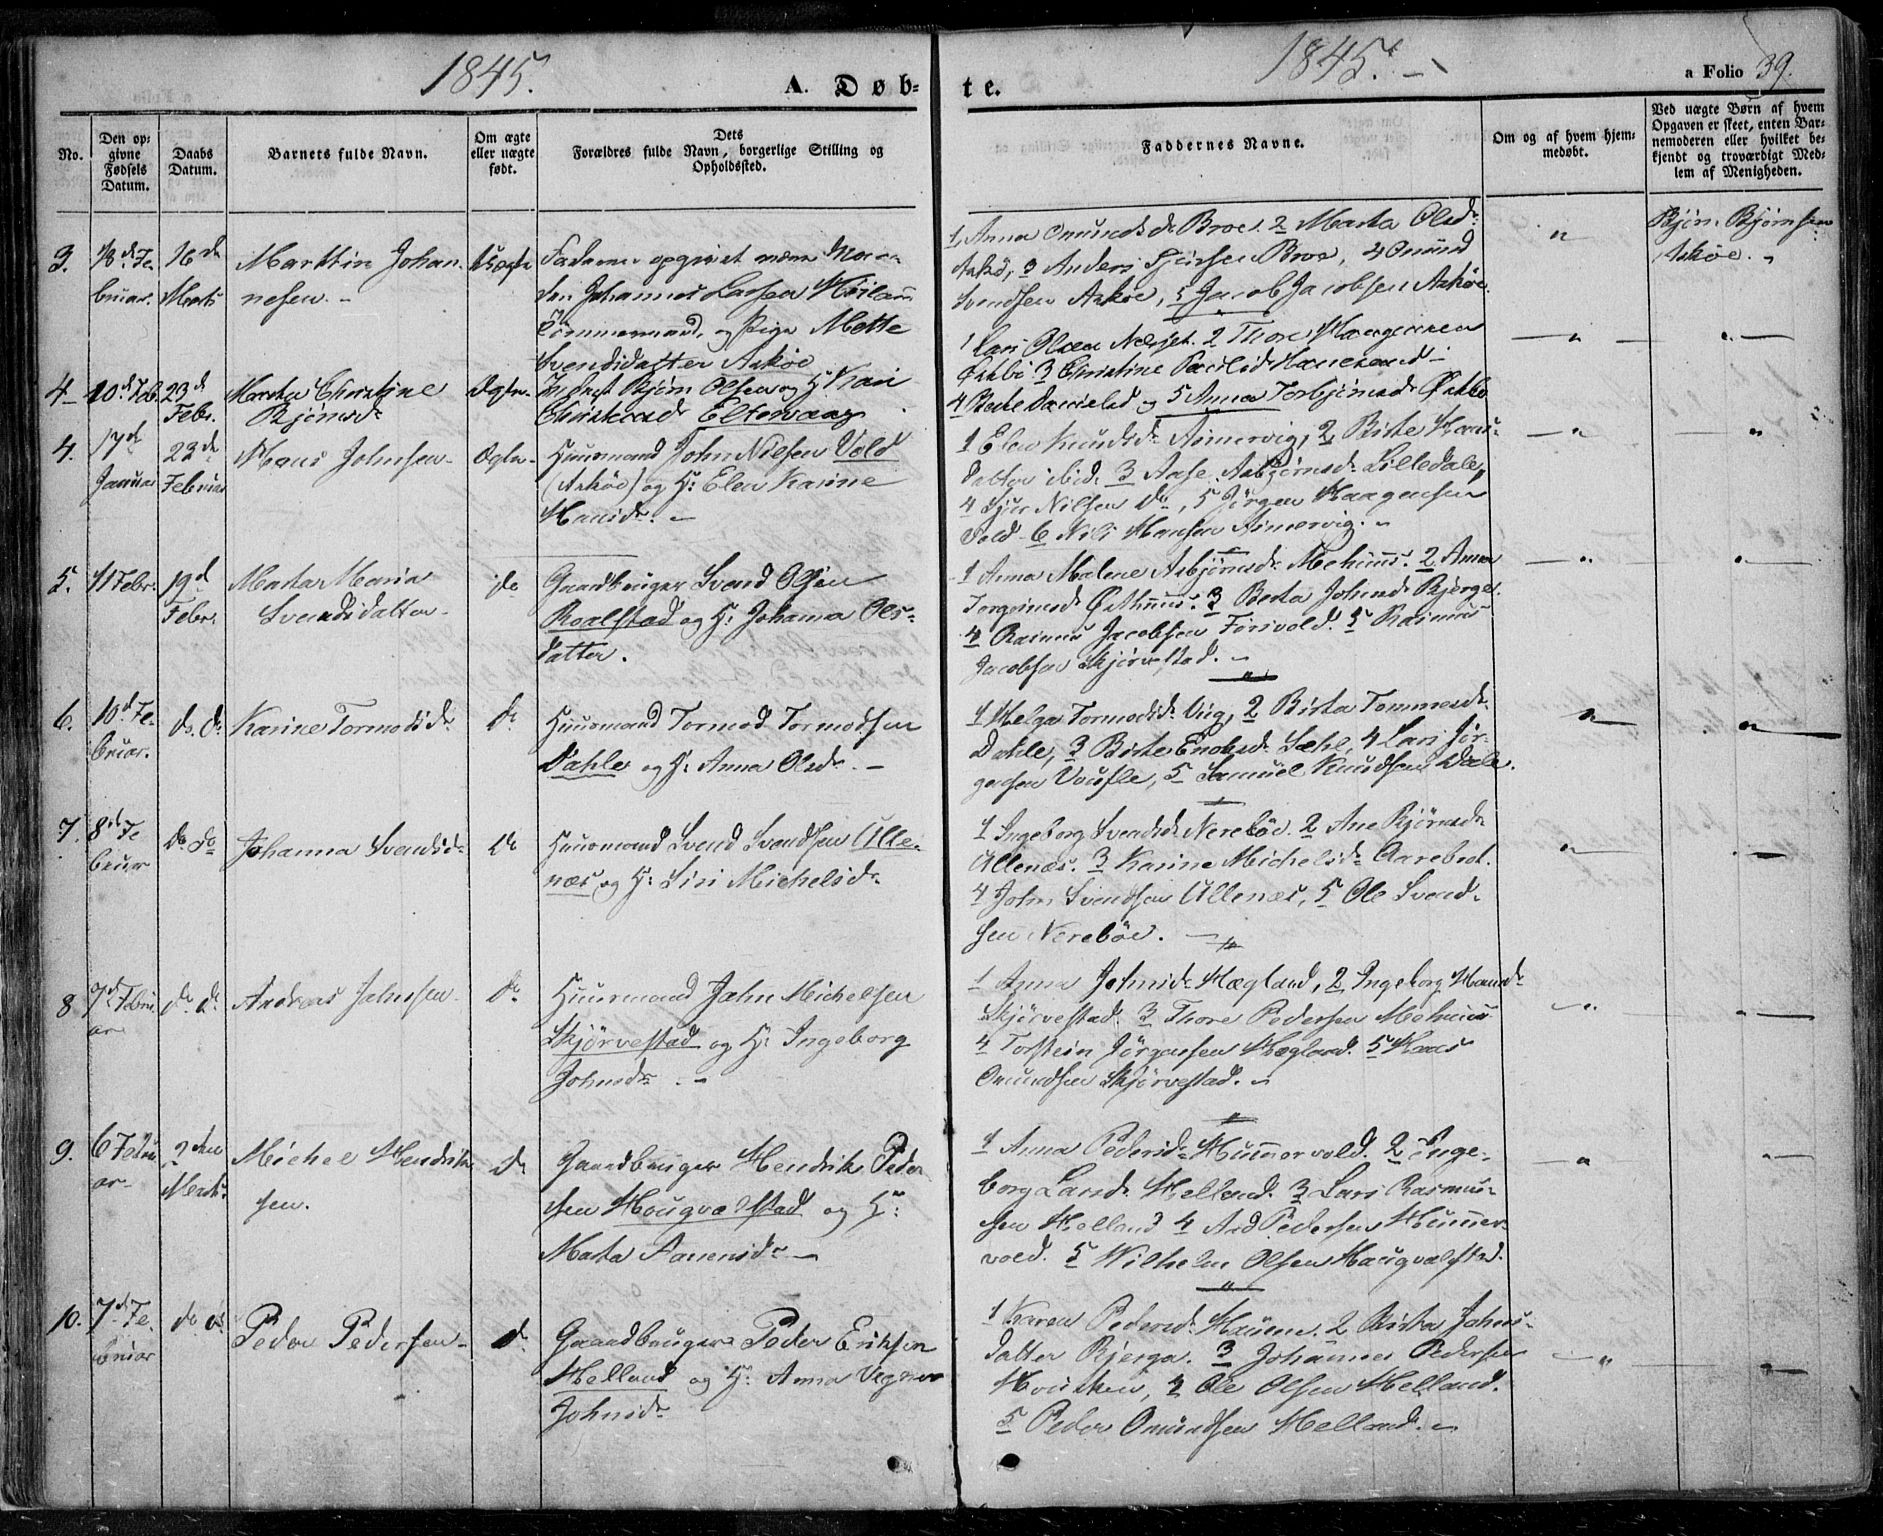 1845.
A. Døb-
te.
1845.
a Folio 39.
No.
Den op-
givne
Fødsels
Datum.
Daabs
Datum.
Barnets fulde Navn.
Om ægte
eller uægte
født.
Dets
Forældres fulde Navn, borgerlige Stilling og
Opholdssted.
Faddernes Navne.
Om og af hvem hjem-
medøbt.
Ved uægte Børn af hvem
Opgaven er skeet, enten Bar-
nemoderen eller hvilket be-
kjendt og troværdigt Med-
lem af Menigheden.
3.
18de Fe-
bruar.
16de
Marts
Marthin Johan-
nesen.
Uægte
Faderen opgivet være
den Johannes Larsen
Tømmermand, og Pige Mette
Svendsdatter Askøe
1 Anna Omundsdr Broe. 2 Marta Olsdr
Askø, 3 Anders Broe, 4 Omund
Svendsen Askøe, 5 Jacob Jacobsen Askøe.
Bjørn Bjørnsen
Askøe.
4
10de Feb.
23de
Febr.
Marta Christine
Bjønsdr
Ægte.
Bjøn Olsen og H. Kari
Eltervaag
1 Lars Olsen 2 Thore Haagensen
Østbø 3 Christine
4 Berte Danielsd og 5 Anna Torbjønsdr Østbø
4.
17de
Januar
23de
Februar
Hans Johnsen
Ægte
Huusmand John Nilsen Vold
(Askøe) og H: Elen Karine
Hansdr.
1 Elen Knudsdr Asmervig, 2 Birte Hans-
datter ibid. 3 Aase Asbjørnsdr Lilledale,
4 Sjur Nilsen do, 5 Jørgen Haagensen
Vold 6 Nils Hansen Asmervig.
5.
11 Febr.
19de
Febr.
Marta Maria
Svendsdatter
do
Gaardbruger Svend Olsen
Roalstad og H: Johanna Ols-
datter.
1 Anna Malene Asbjønsdr Mehuus. 2 Anna
Torgeirsdr Østhuus. 3 Berta Johnsdr Bjerge.
4 Rasmus Jacobsen Førsvold. 5 Rasmus
Jacobsen Skjørvestad.
6.
10de Fe-
bruar.
do. do
Karine Tormodsdr
do
Huusmand Tormod Tormodsen
Dahle og H: Anna Olsdr.
1 Helga Tormodsdr Viig, 2 Birta Tommesdr
Dahle, 3 Birte Enoksdr Sæhl, 4 Lars Jør-
gensen Voustle, 5 Samuel Knudsen Dale.
7.
8de Fe
bruar
do do
Johanna Svendsdr
do
Huusmand Svend Svendsen Ulle-
næs og H: Siri Michelsdr
1 Ingeborg Svendsdr Nerebøe. 2 Ane Bjørnsdr
Ullenæs. 3 Karine Michelsdr Aarebrot.
4 John Svendsen Ullenæs, 5 Ole Svend-
sen Nerebøe.
8
7de Febru
ar
do. do
Andreas Johnsen
do
Huusmand John Michelsen
Skjørvestad og H: Ingeborg
Johnsdr
1 Anna Johnsdr Hægland, 2 Ingeborg Hansdr
Skjørvestad. 3 Thore Pedersen Mehuus
4 Torstein Jørgensen Hægland. 5 Hans
Omundsen Skjørvestad.
9.
6 Febru
ar
2den
Marts
Michel Hendrik-
sen.
do
Gaardbruger Hendrik Peder
sen Hougvalstad og H:
Marta Aanensdr
1 Anna Pedersdr Hummervold. 2 Inge-
borg Larsdr Helland. 3 Lars Rasmus-
sen Helland 4 Asd Pedersen Hummer-
vold. 5 Wilhelm Olsen Haugvalstad.
10.
7de Fe-
bruar
do do
Peder Pedersen
do
Gaardbruger Peder Eriksen
Helland og H: Anna
Johnsdr
1 Karen Pedersdr 2 Birta Johns-
datter Bjerga. 3 Johannes Pedersen
4 Ole Olsen Helland.
5 Peder Omundsen Helland.